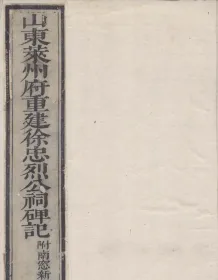 山東萊州府重建徐忠烈公祠碑記
附南窓新